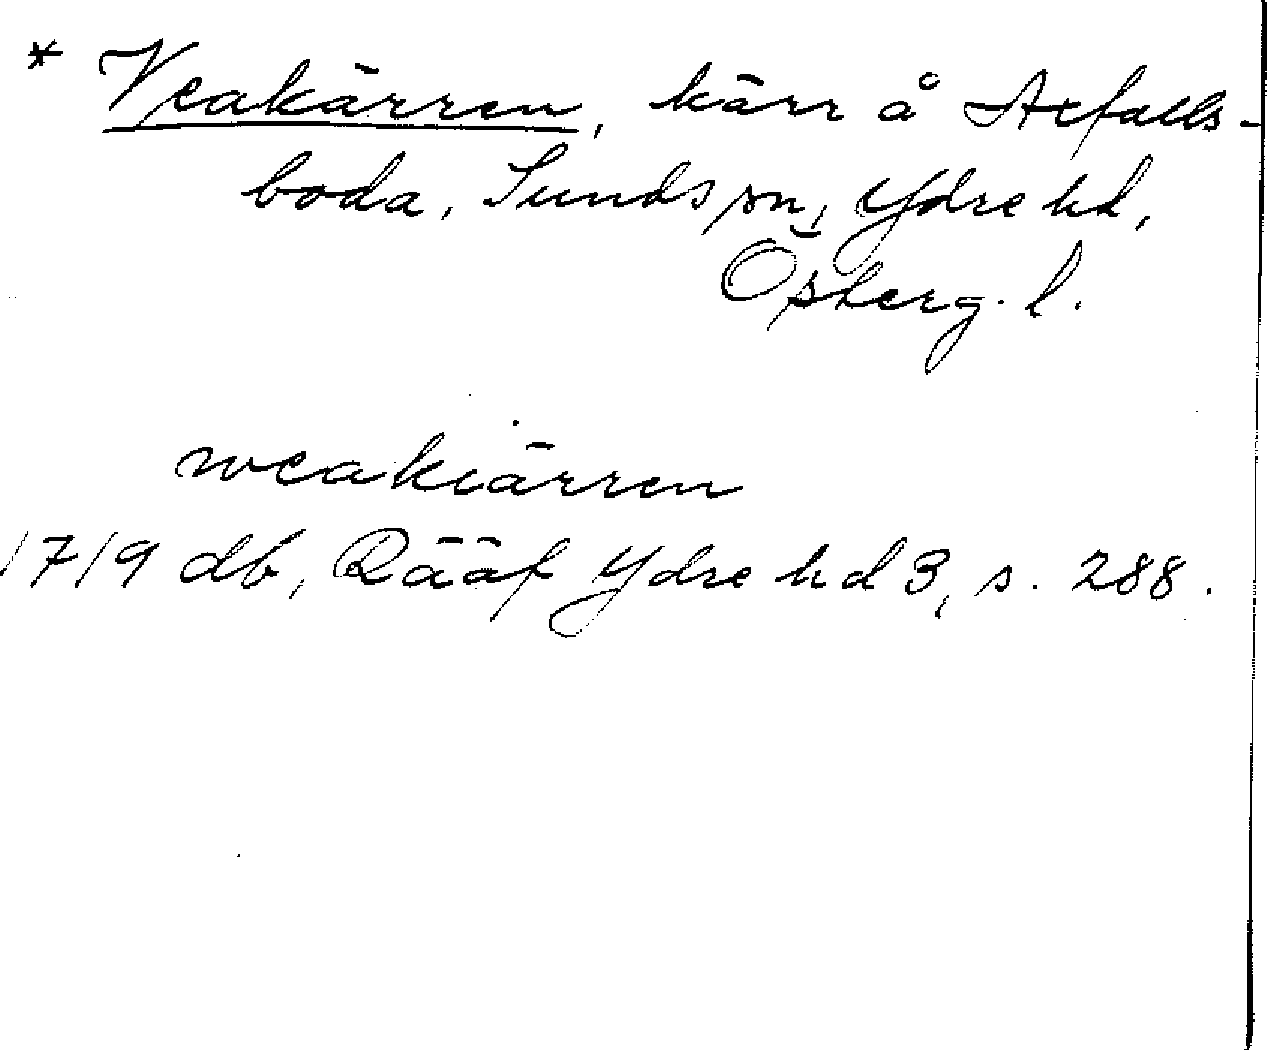 * Veakärren, kärr å Axfalls-
boda, Sunds sn, Ydre hd,
Österg. l.
weakiärren
1719 db, Rääf Ydre hd 3, s. 288.